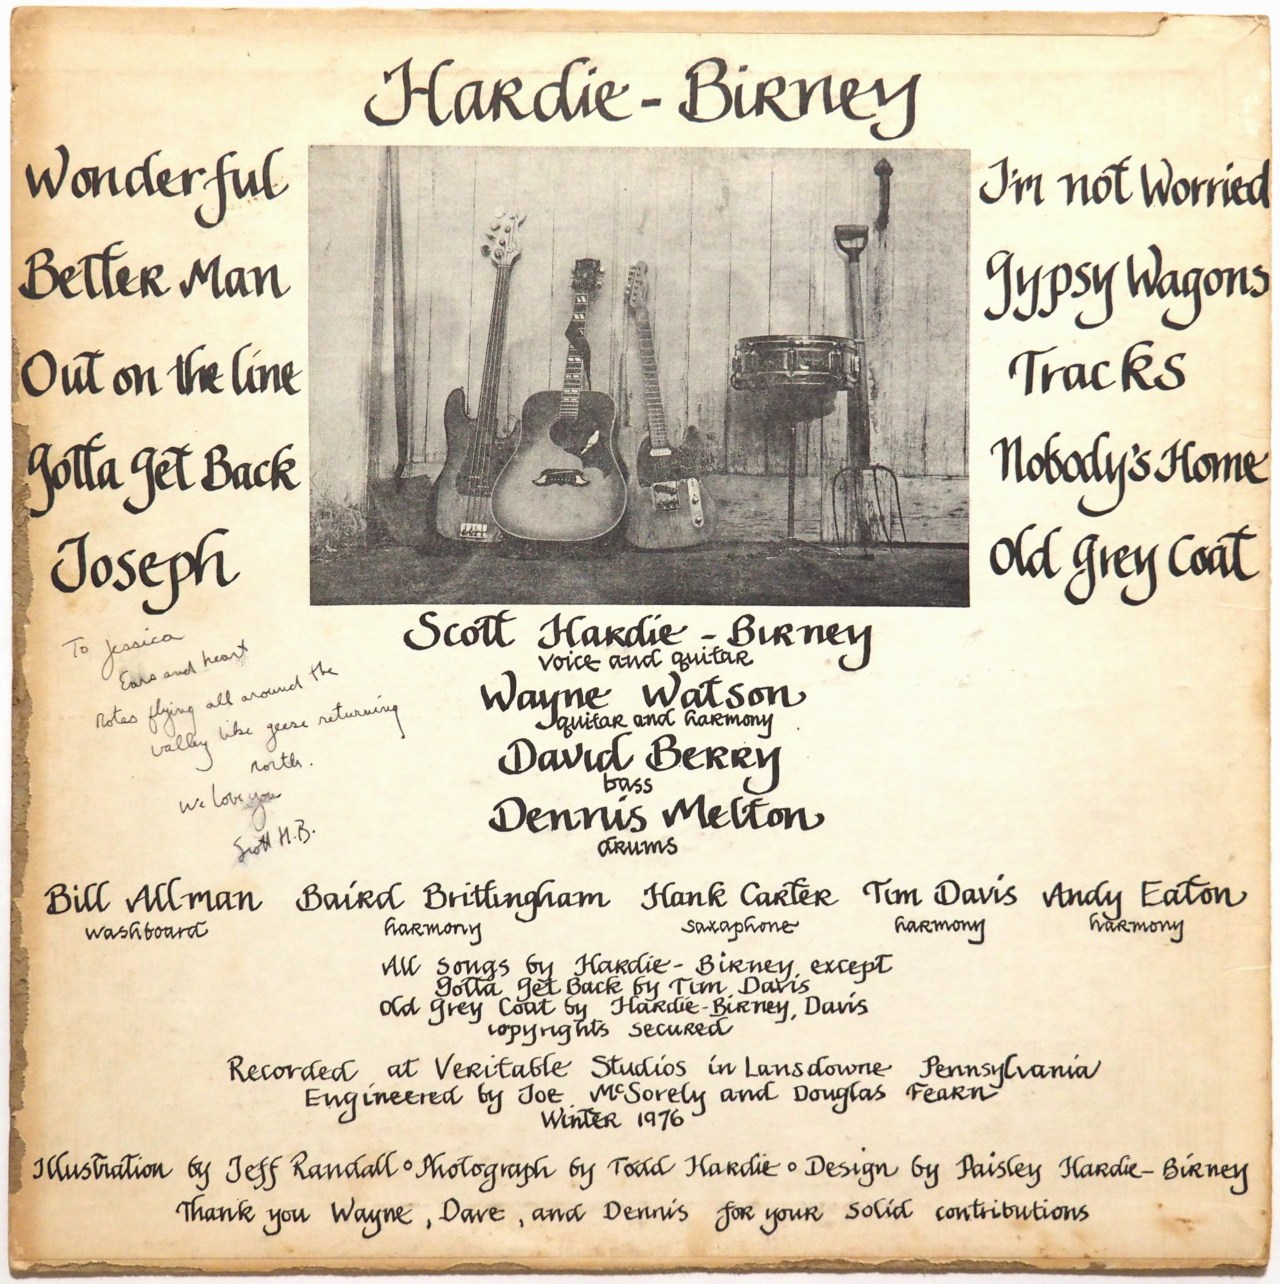 Hardie - Birney
Wonderful
Better Man
Out on the line
Gotta Get Back
Joseph
I'm not Worried
Gypsy Wagons
Tracks
Nobody's Home
Old Grey Coat
To Jessica
Ears and heart
notes flying all around the
valley like geese returning
north.
We love you
Scott H.B.
Scott Hardie - Birney
voice and guitar
Wayne Watson
guitar and harmony
David Berry
bass
Dennis Melton
drums
Bill Allman Baird Brittingham Hank Carter Tim Davis Andy Eaton
washboard harmony saxaphone harmony harmony
All songs by Hardie - Birney, except
Gotta Get Back by Tim Davis
Old Grey Coat by Hardie-Birney, Davis
copyrights secured
Recorded at Veritable Studios in Lansdowne Pennsylvania
Engineered by Joe McSorely and Douglas Fearn
Winter 1976
Illustration by Jeff Randall ° Photograph by Todd Hardie ° Design by Paisley Hardie - Birney
Thank you Wayne, Dave, and Dennis for your solid contributions